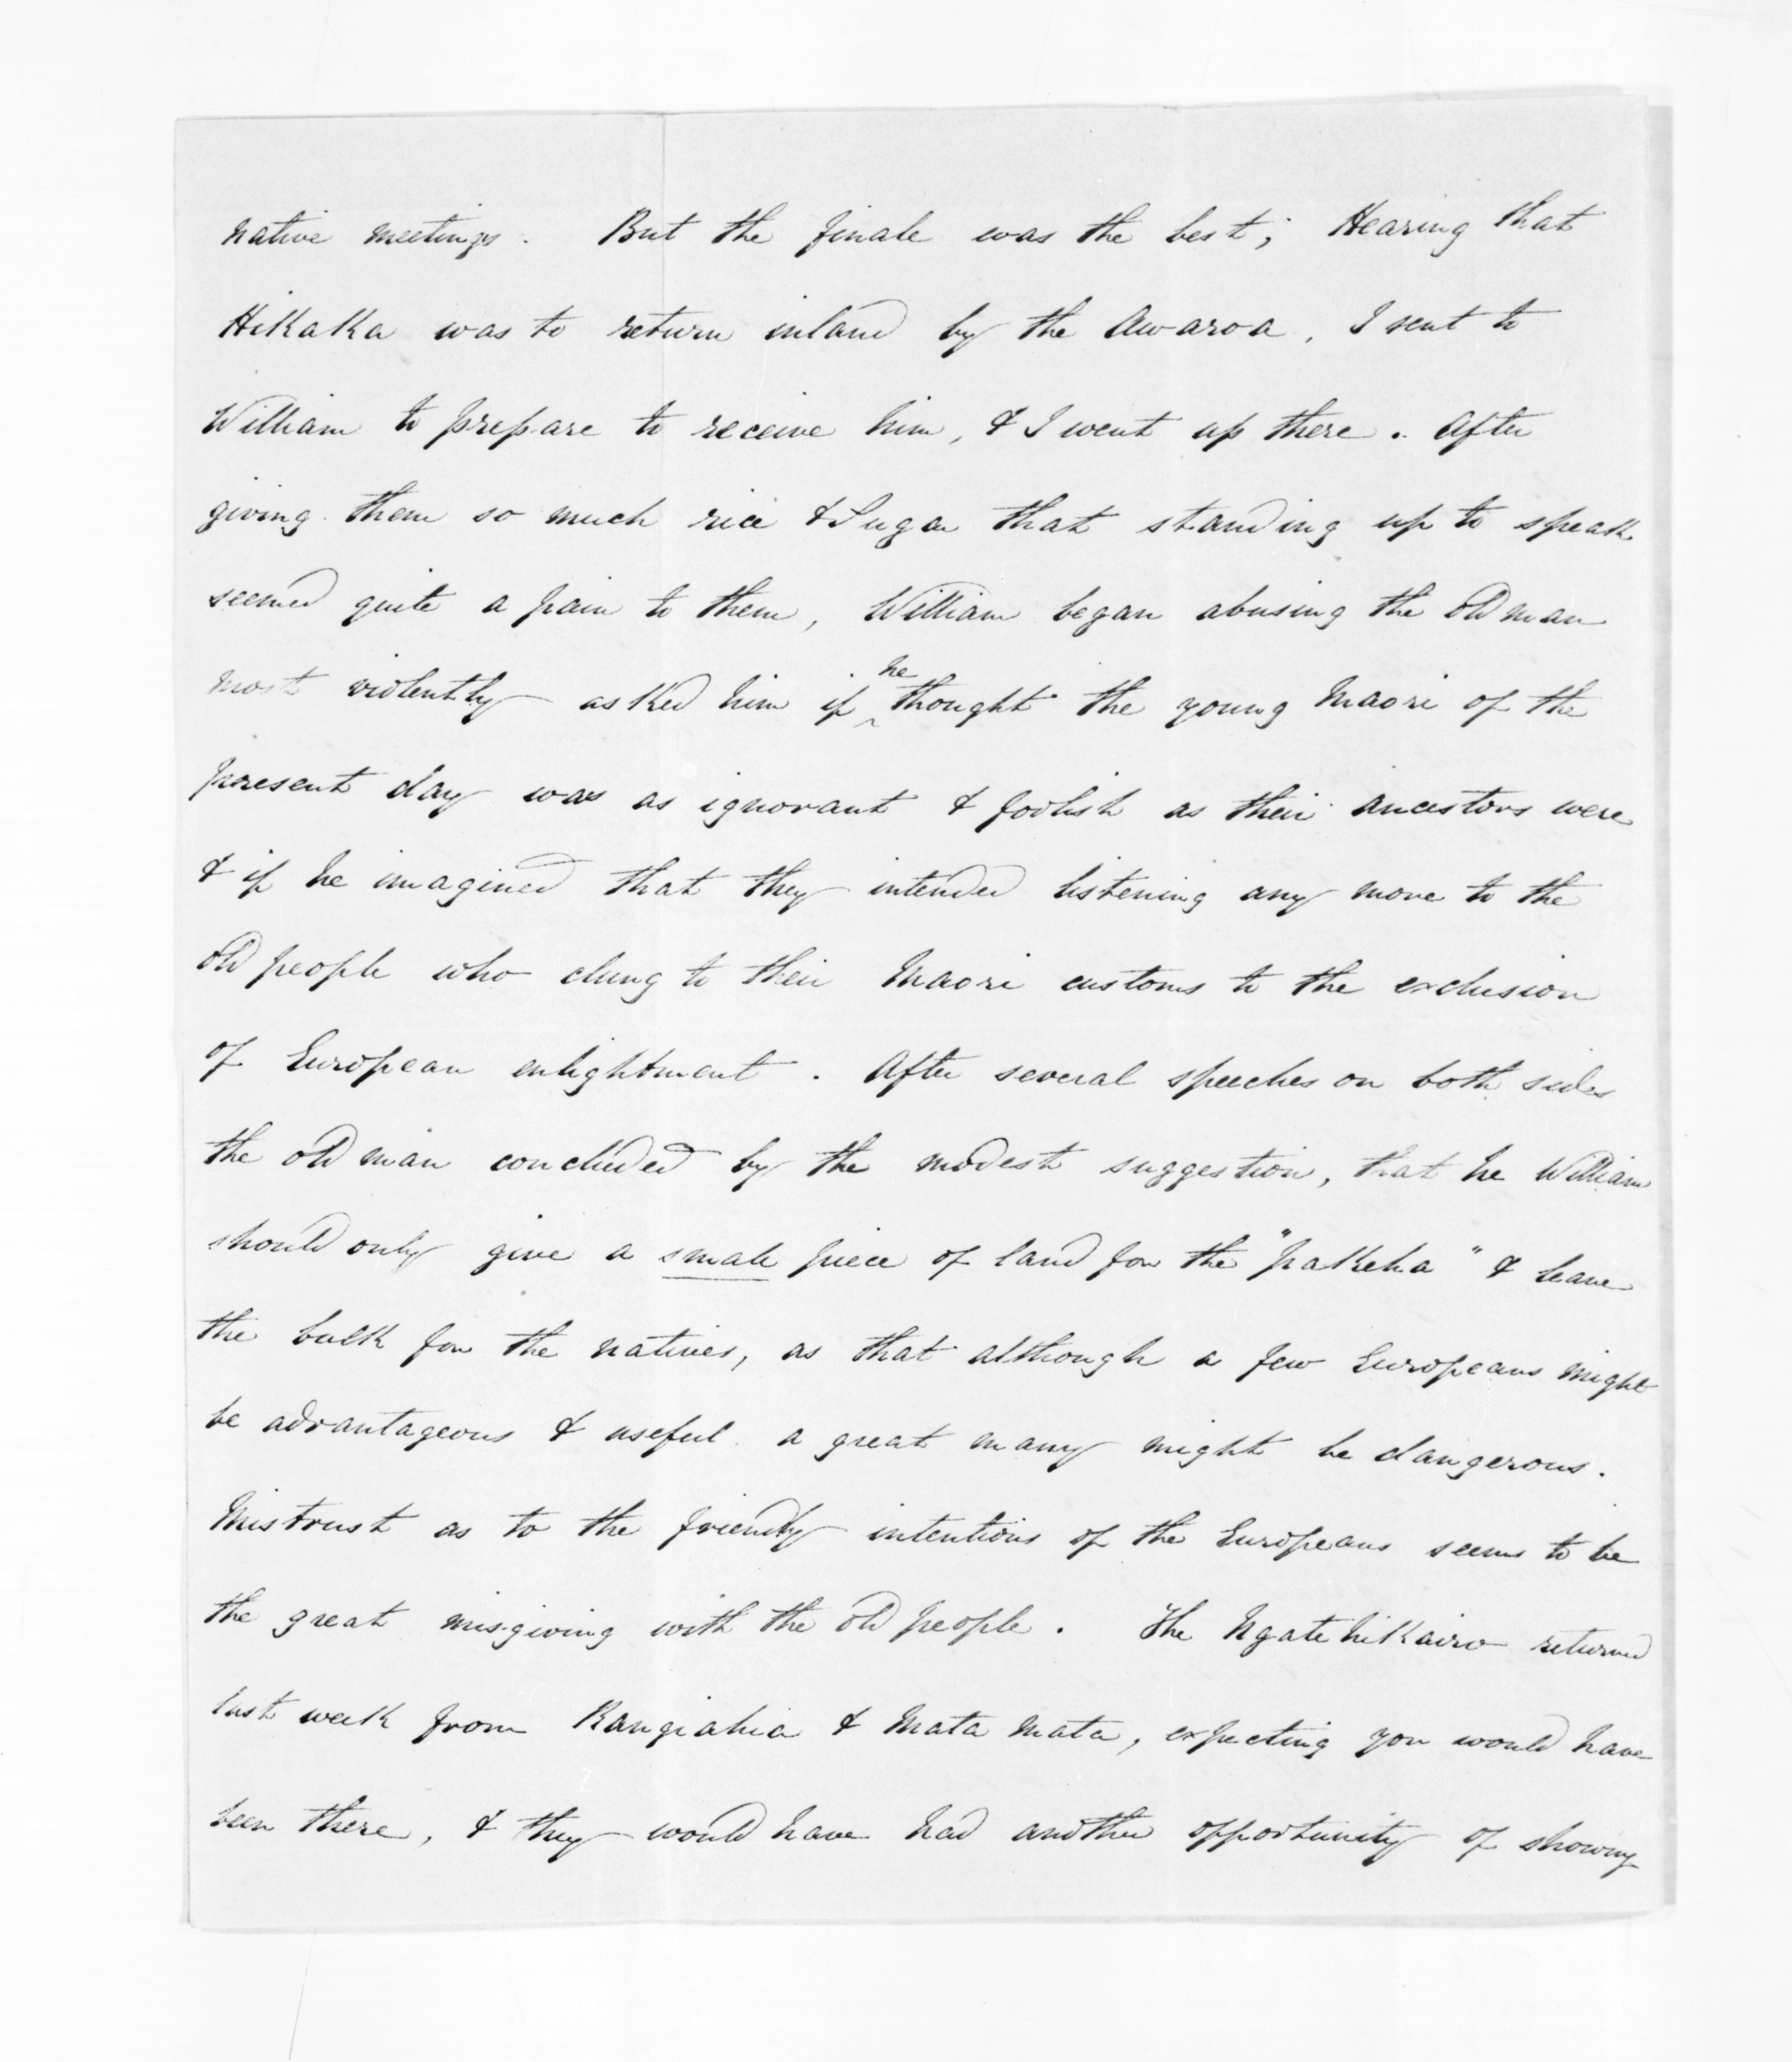 native meetings. But the finale was the best; Hearing that
Hikaka was to return inland by the Awaroa, I sent to
William to prepare to receive him, & I went up there. After
giving them so much rice & Sugar that standing up to speak
seemed quite a pain to them, William began abusing the old man
most violently asked him if he thought the young Maori of the
present day was as ignorant & foolish as their ancestors were
& if he imagined that they intended listening any more to the
old people who clung to their Maori customs to the exclusion
of European enlightment. After several speeches on both sides
the old man concluded by the modest suggestion, that he William
should only give a small piece of land for the "pakeha" & leave
the bulk for the natives, as that although a few Europeans might
be advantageous & useful a great many might be dangerous.
Mistrust as to the friendly intentions of the Europeans seems to be
the great misgiving with the old people. The Ngatehikairo returned
last week from Rangiahia & Mata Mata, expecting you would have
been there, & they would have had another opportunity of showing